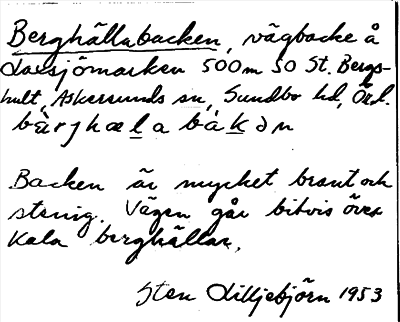 Berghällabacken, vägbacke å
Laxsjömarken 500m SO St. Bergs-
hult, Askersunds sn, Sundbo hd, Öreb. l.
bàrjhælabákən
Backen är mycket brant och
stenig. Vägen går bitvis över
kala berghällar,
Sten Lilljebjörn 1953